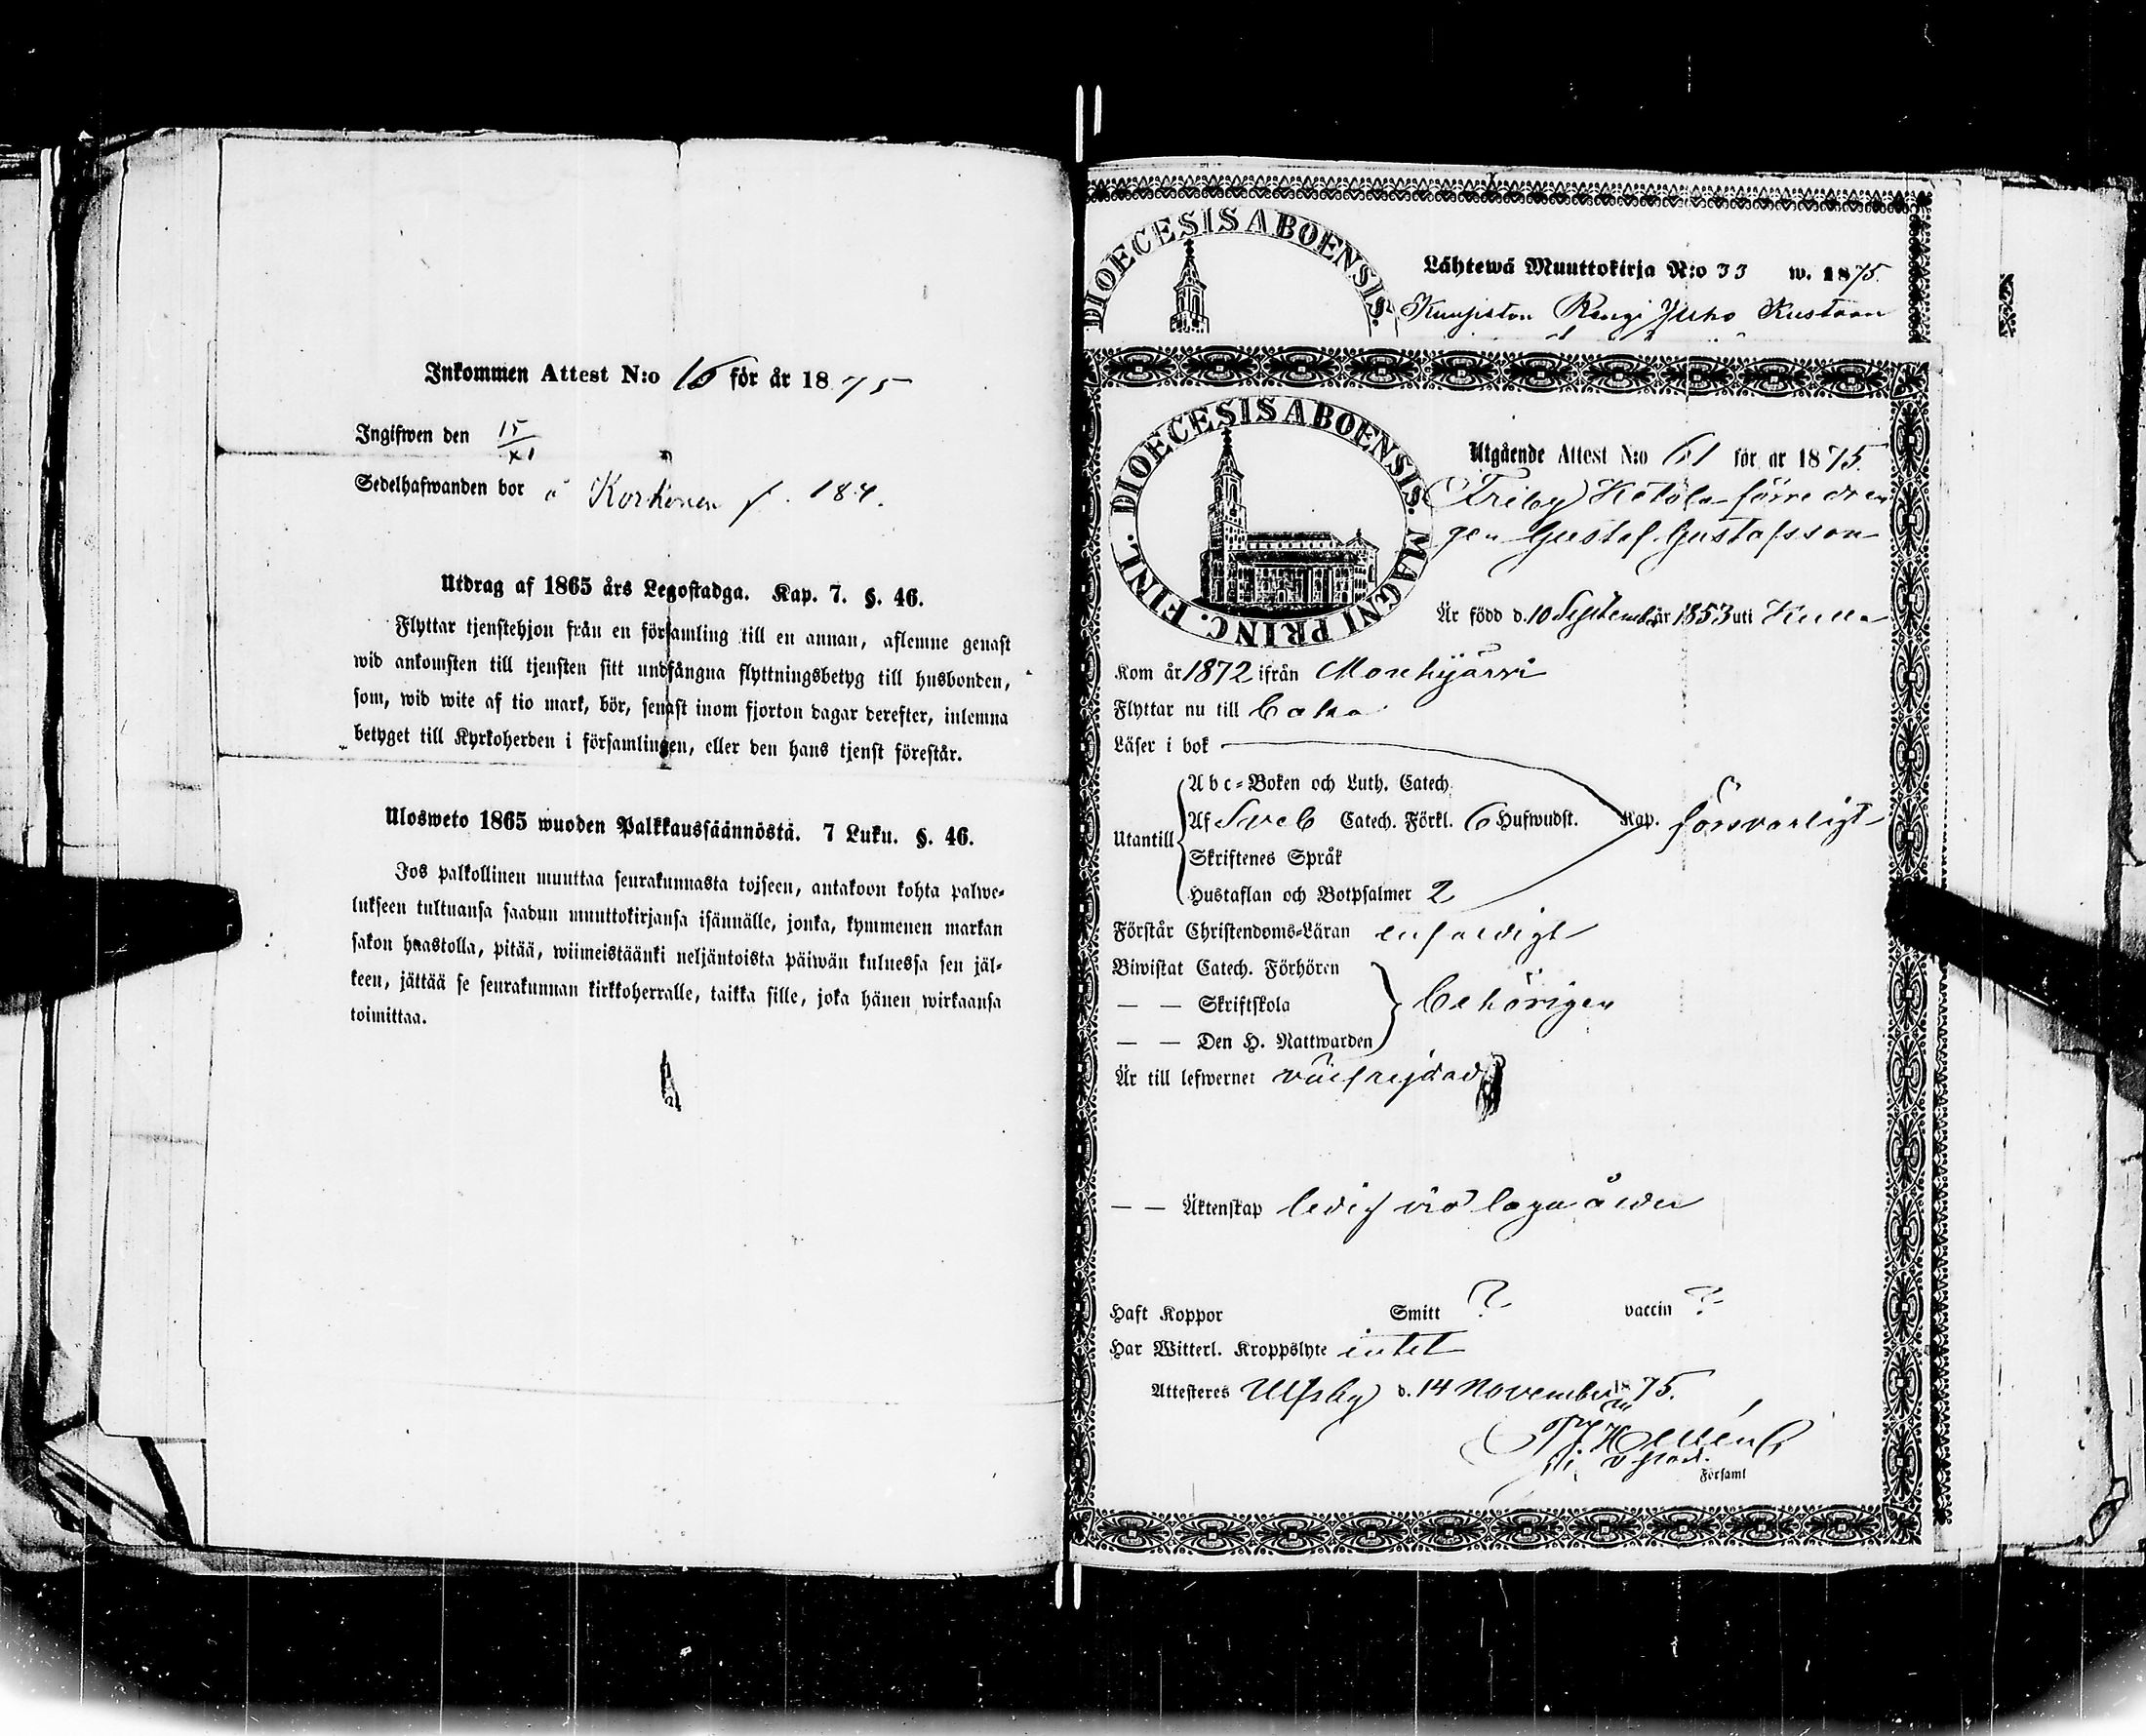 Inkommen Attest N:o 16 för år 1875
Ingifwen den 15/XI
Sedelhafwanden bor å Korkonen f. 184.
Utdrag af 1865 års Legostadga. Kap. 7. §. 46.
Flyttar tjenstehjon från en församling till en annan, aflemne genast
wid ankomsten till tjensten sitt undfångna flyttningsbetyg till husbonden,
som, wid wite af tio mark, bör, senast inom fjorton dagar derefter, inlemna
betyget till Kyrkoherden i församlingen, eller den hans tjenst förestår.
Ulosweto 1865 wuoden Palkkaussäännöstä. 7 Luku. §. 46.
Jos palkollinen muuttaa seurakunnasta toiseen, antakoon kohta palwe-
lukseen tultuansa saadun muuttokirjansa isännälle, jonka, kymmenen markan
sakon haastolla, pitää, wiimeistäänki neljäntoista päiwän kuluessa sen jäl-
keen, jättää se seurakunnan kirkkoherralle, taikka sille, joka hänen wirkaansa
toimittaa.
DIOECESIS ABOENSIS.
Lähtewä Muuttokirja N:o 33 w. 1875.
Rengi Juho Kustaan
DIOECESIS ABOENSIS. MAGNI PRINC. FINL.
Utgående Attest N:o 61 för år 1875.
Friby Ketola förre dren
gen Gustaf Gustafsson
Är född d. 10 September år 1853 uti Kulla
Kom år 1872 ifrån Mouhijärvi
Flyttar nu till
Läser i bok
Abc-Boken och Luth. Catech.
Utantill
Af Sveb Catech. Förkl. 6 Hufwudst. Kap. försvarligt
Skriftenes Språk
Hustaflan och Botpsalmer 2
Förstår Christendoms-Läran enfaldigt
Biwistat Catech. Förhören
— — Skriftskola behörigen
— — Den H. Nattwarden
Är till lefwernet välfrejdad
— — Äktenskap ledig vid laga ålder
Haft Koppor Smitt ? vaccin ?
Har Witterl. Kroppslyte intet
Attesteras Ulfsby d. 14 November 1875.
Församl